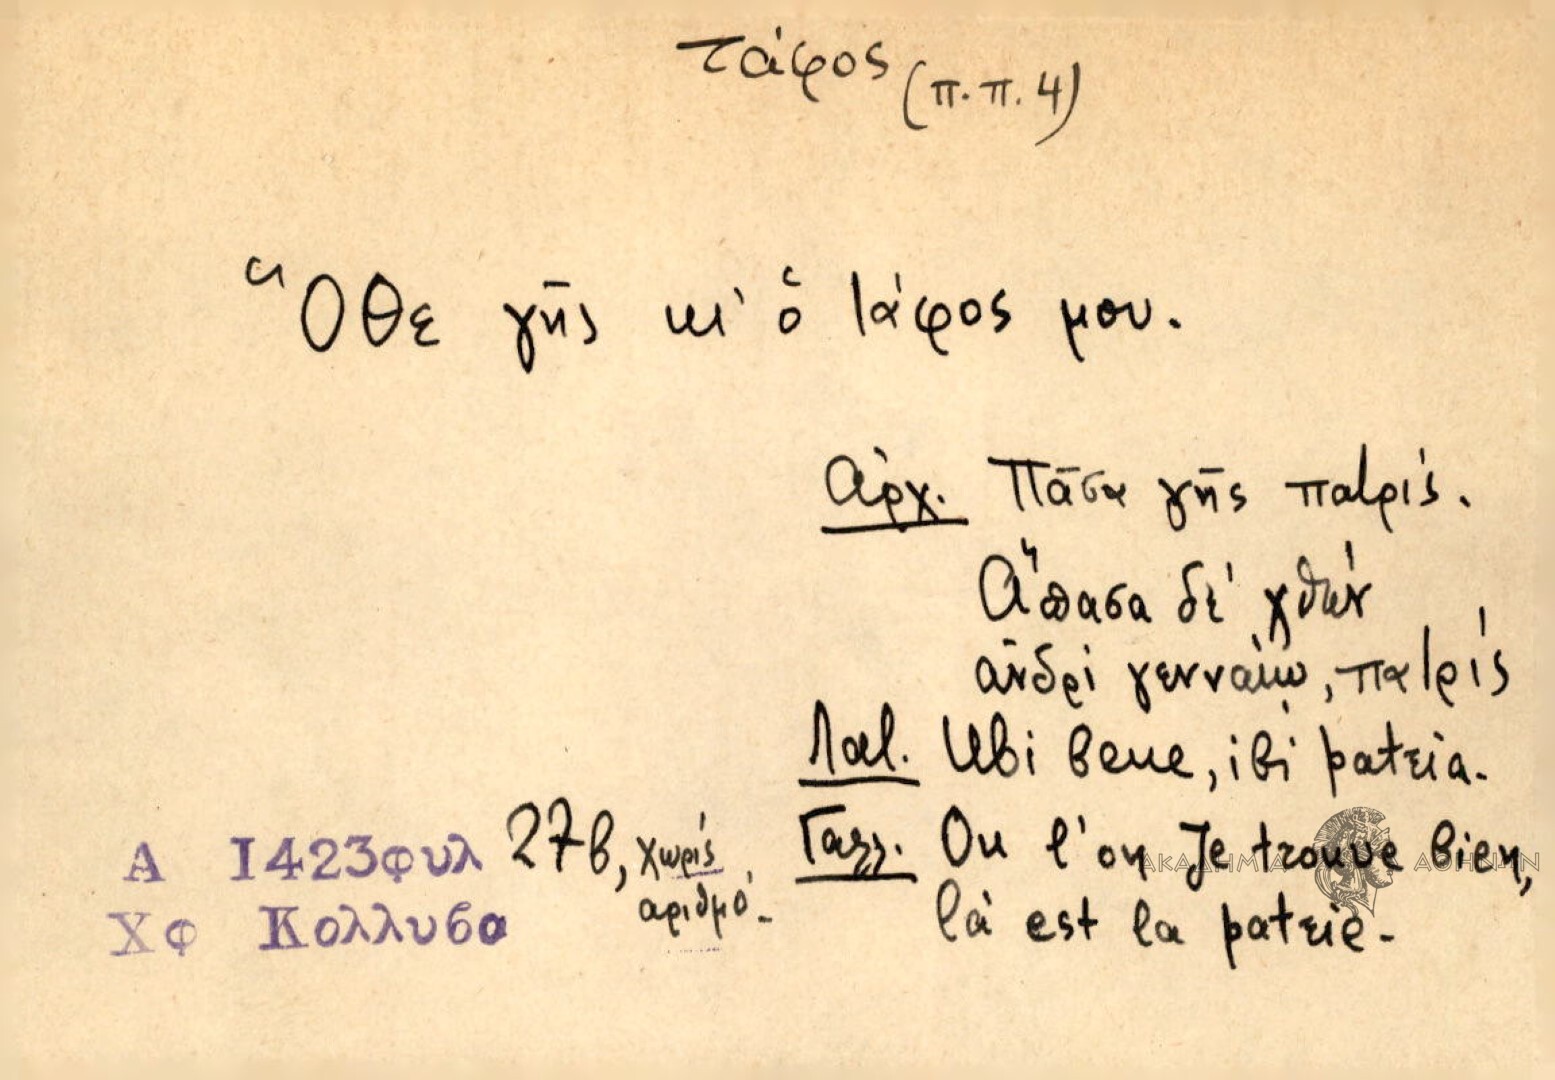 τάφος (π.π. 4)
Ὅθε γῆς κι' ὁ τάφος μου.
Ἀρχ. Πᾶσα γῆς πατρίς.
Ἅπασα δέ χθών
ἀνδρί γενναίῳ, πατρίς
Λατ. Ubi bene, ibi patria.
Γαλλ. Ou l'on Je trouve bien,
là est la patrie.
Α 1423 φυλ 27β, χωρίς
ἀριθμό.
Χφ Κολλυβα
ΑΚΑΔΗΜΙΑ ΑΘΗΝΩΝ